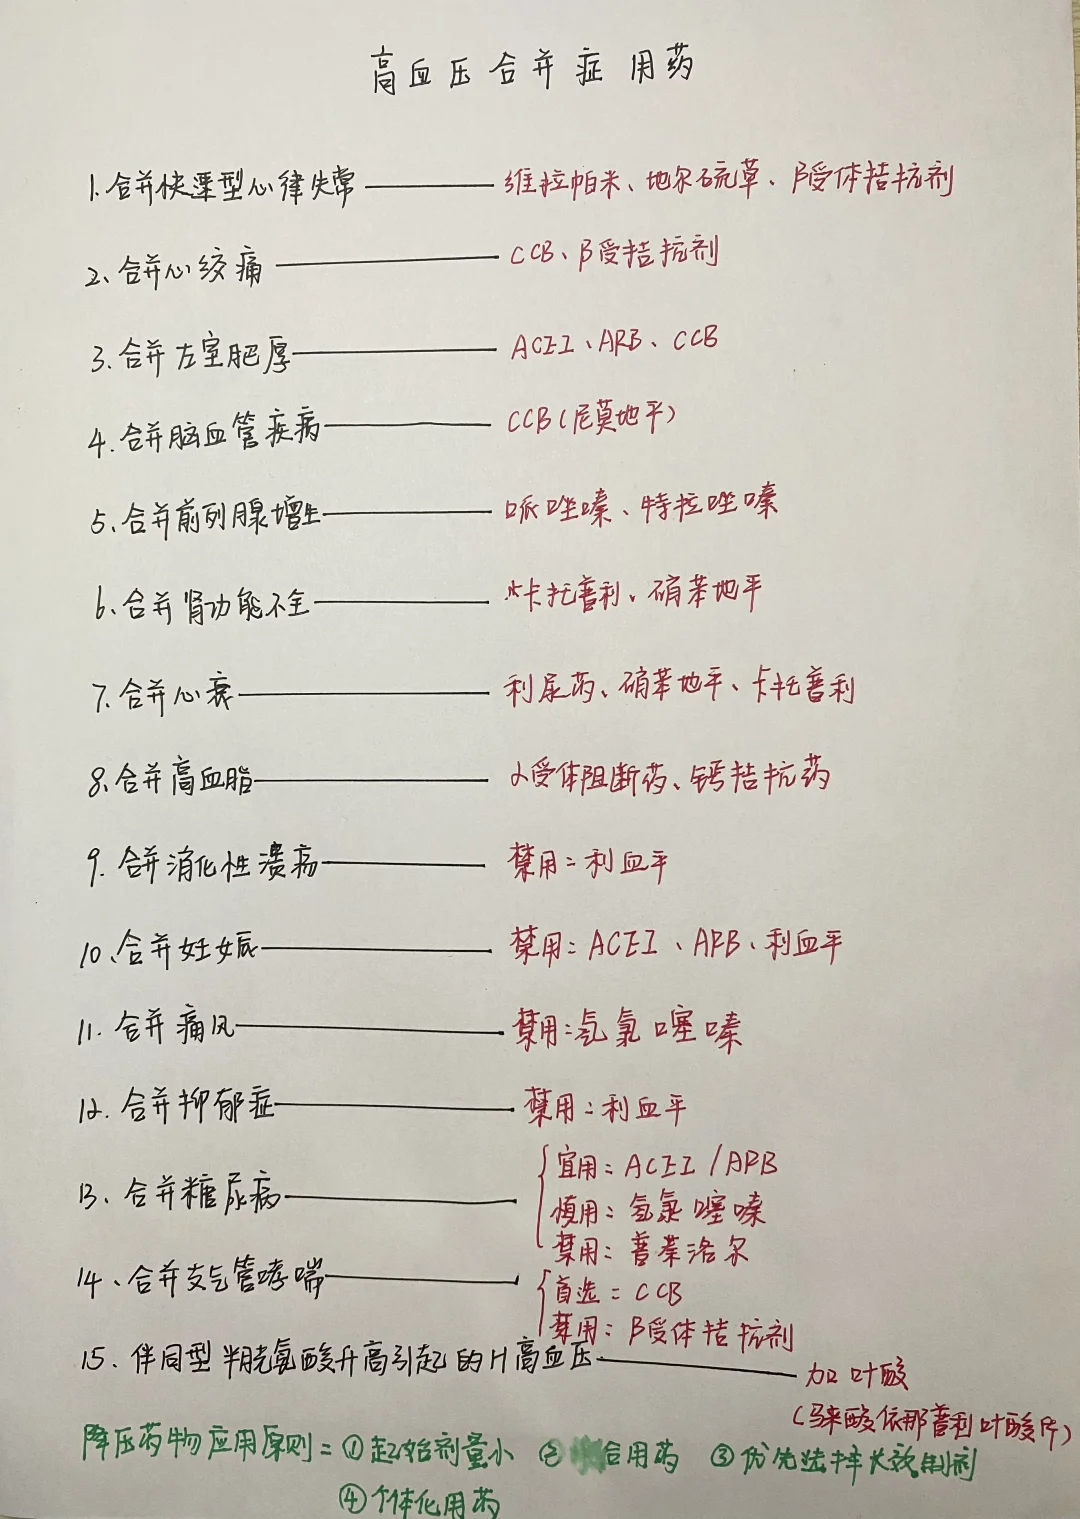 高血压合并症用药
1.合并快速型心律失常——维拉帕米、地尔硫草、β受体拮抗剂
2、合并心绞痛——CCB、β受拮抗剂
3.合并左室肥厚——ACEI、ARB、CCB
4.合并脑血管疾病——CCB(尼莫地平)
5、合并前列腺增生——哌唑嗪、特拉唑嗪
6、合并肾功能不全——卡托普利、硝苯地平
7.合并心衰——利尿药、硝苯地平、卡托普利
8、合并高血脂——α受体阻断药、钙拮抗药
9.合并消化性溃疡——禁用:利血平
10、合并妊娠——禁用:ACEI、ARB、利血平
11.合并痛风——禁用:氢氯噻嗪
12.合并抑郁症——禁用:利血平
13、合并糖尿病——宜用:ACEI/ARB
慎用:氢氯噻嗪
禁用:普萘洛尔
14、合并支气管哮喘——首选:CCB
禁用:β受体拮抗剂
15.伴同型半胱氨酸升高引起的H高血压——加叶酸
(马来酸依那普利叶酸片)
降压药物应用原则:①起始剂量小 ②合用药 ③优先选择长效制剂
④个体化用药